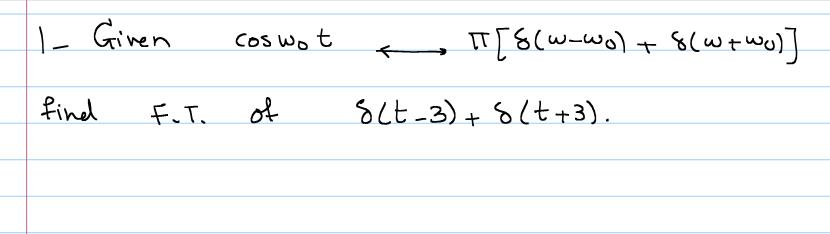 1- Given cos ω₀t ⟷ π[δ(ω-ω₀) + δ(ω+ω₀)]
find F.T. of δ(t-3) + δ(t+3).